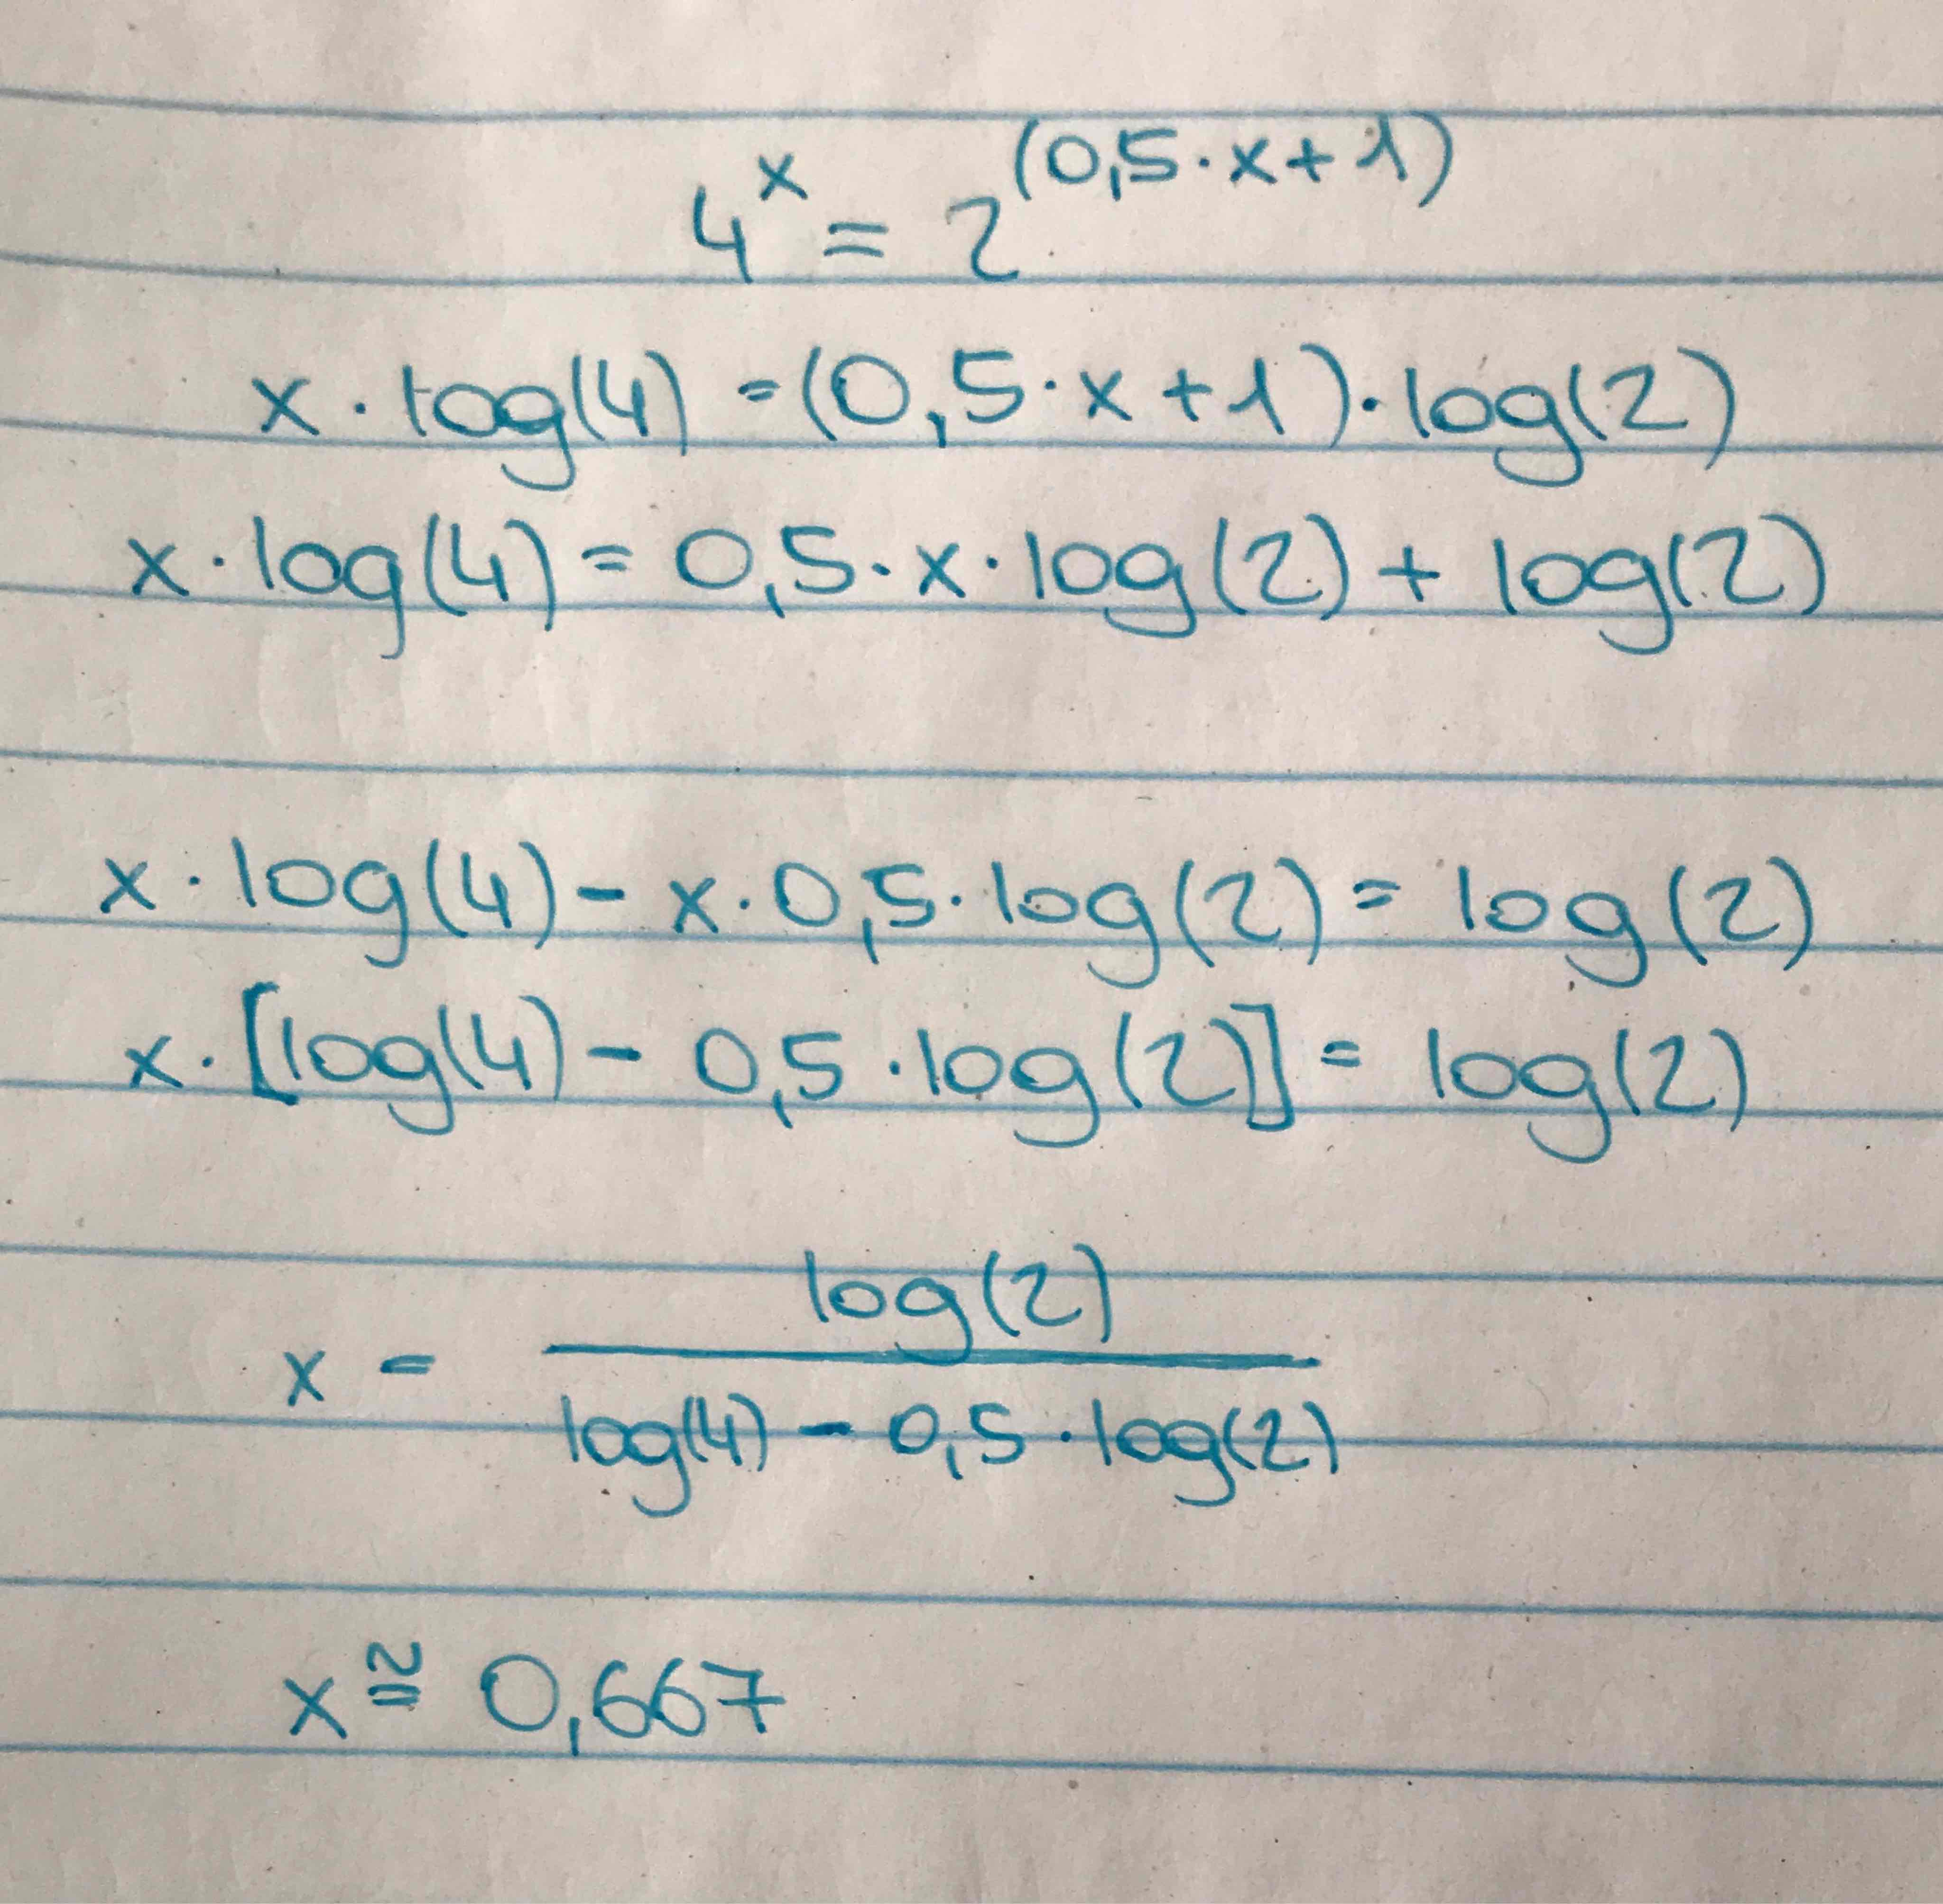 4^x = 2^(0,5·x+1)
x · log(4) = (0,5·x+1)·log(2)
x·log(4) = 0,5·x·log(2) + log(2)
x·log(4) - x·0,5·log(2) = log(2)
x·[log(4) - 0,5·log(2)] = log(2)
x = log(2) / log(4) - 0,5·log(2)
x ≅ 0,667